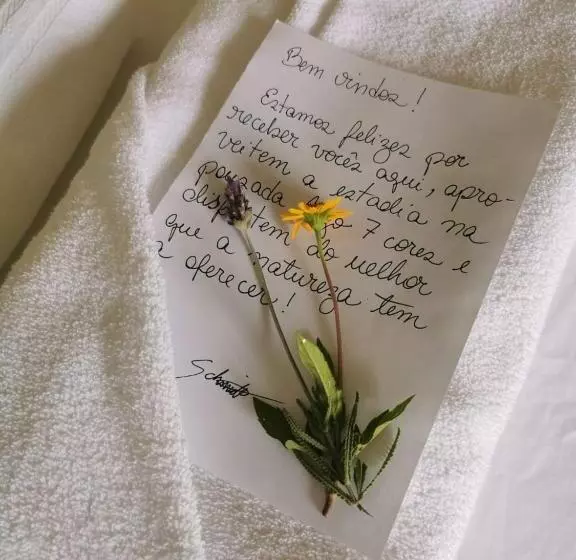 Bem vindos!
Estamos felizes por
receber vocês aqui, apro-
veitem a estadia na
pousada 7 cores e
do melhor
que a natureza tem
a oferecer!